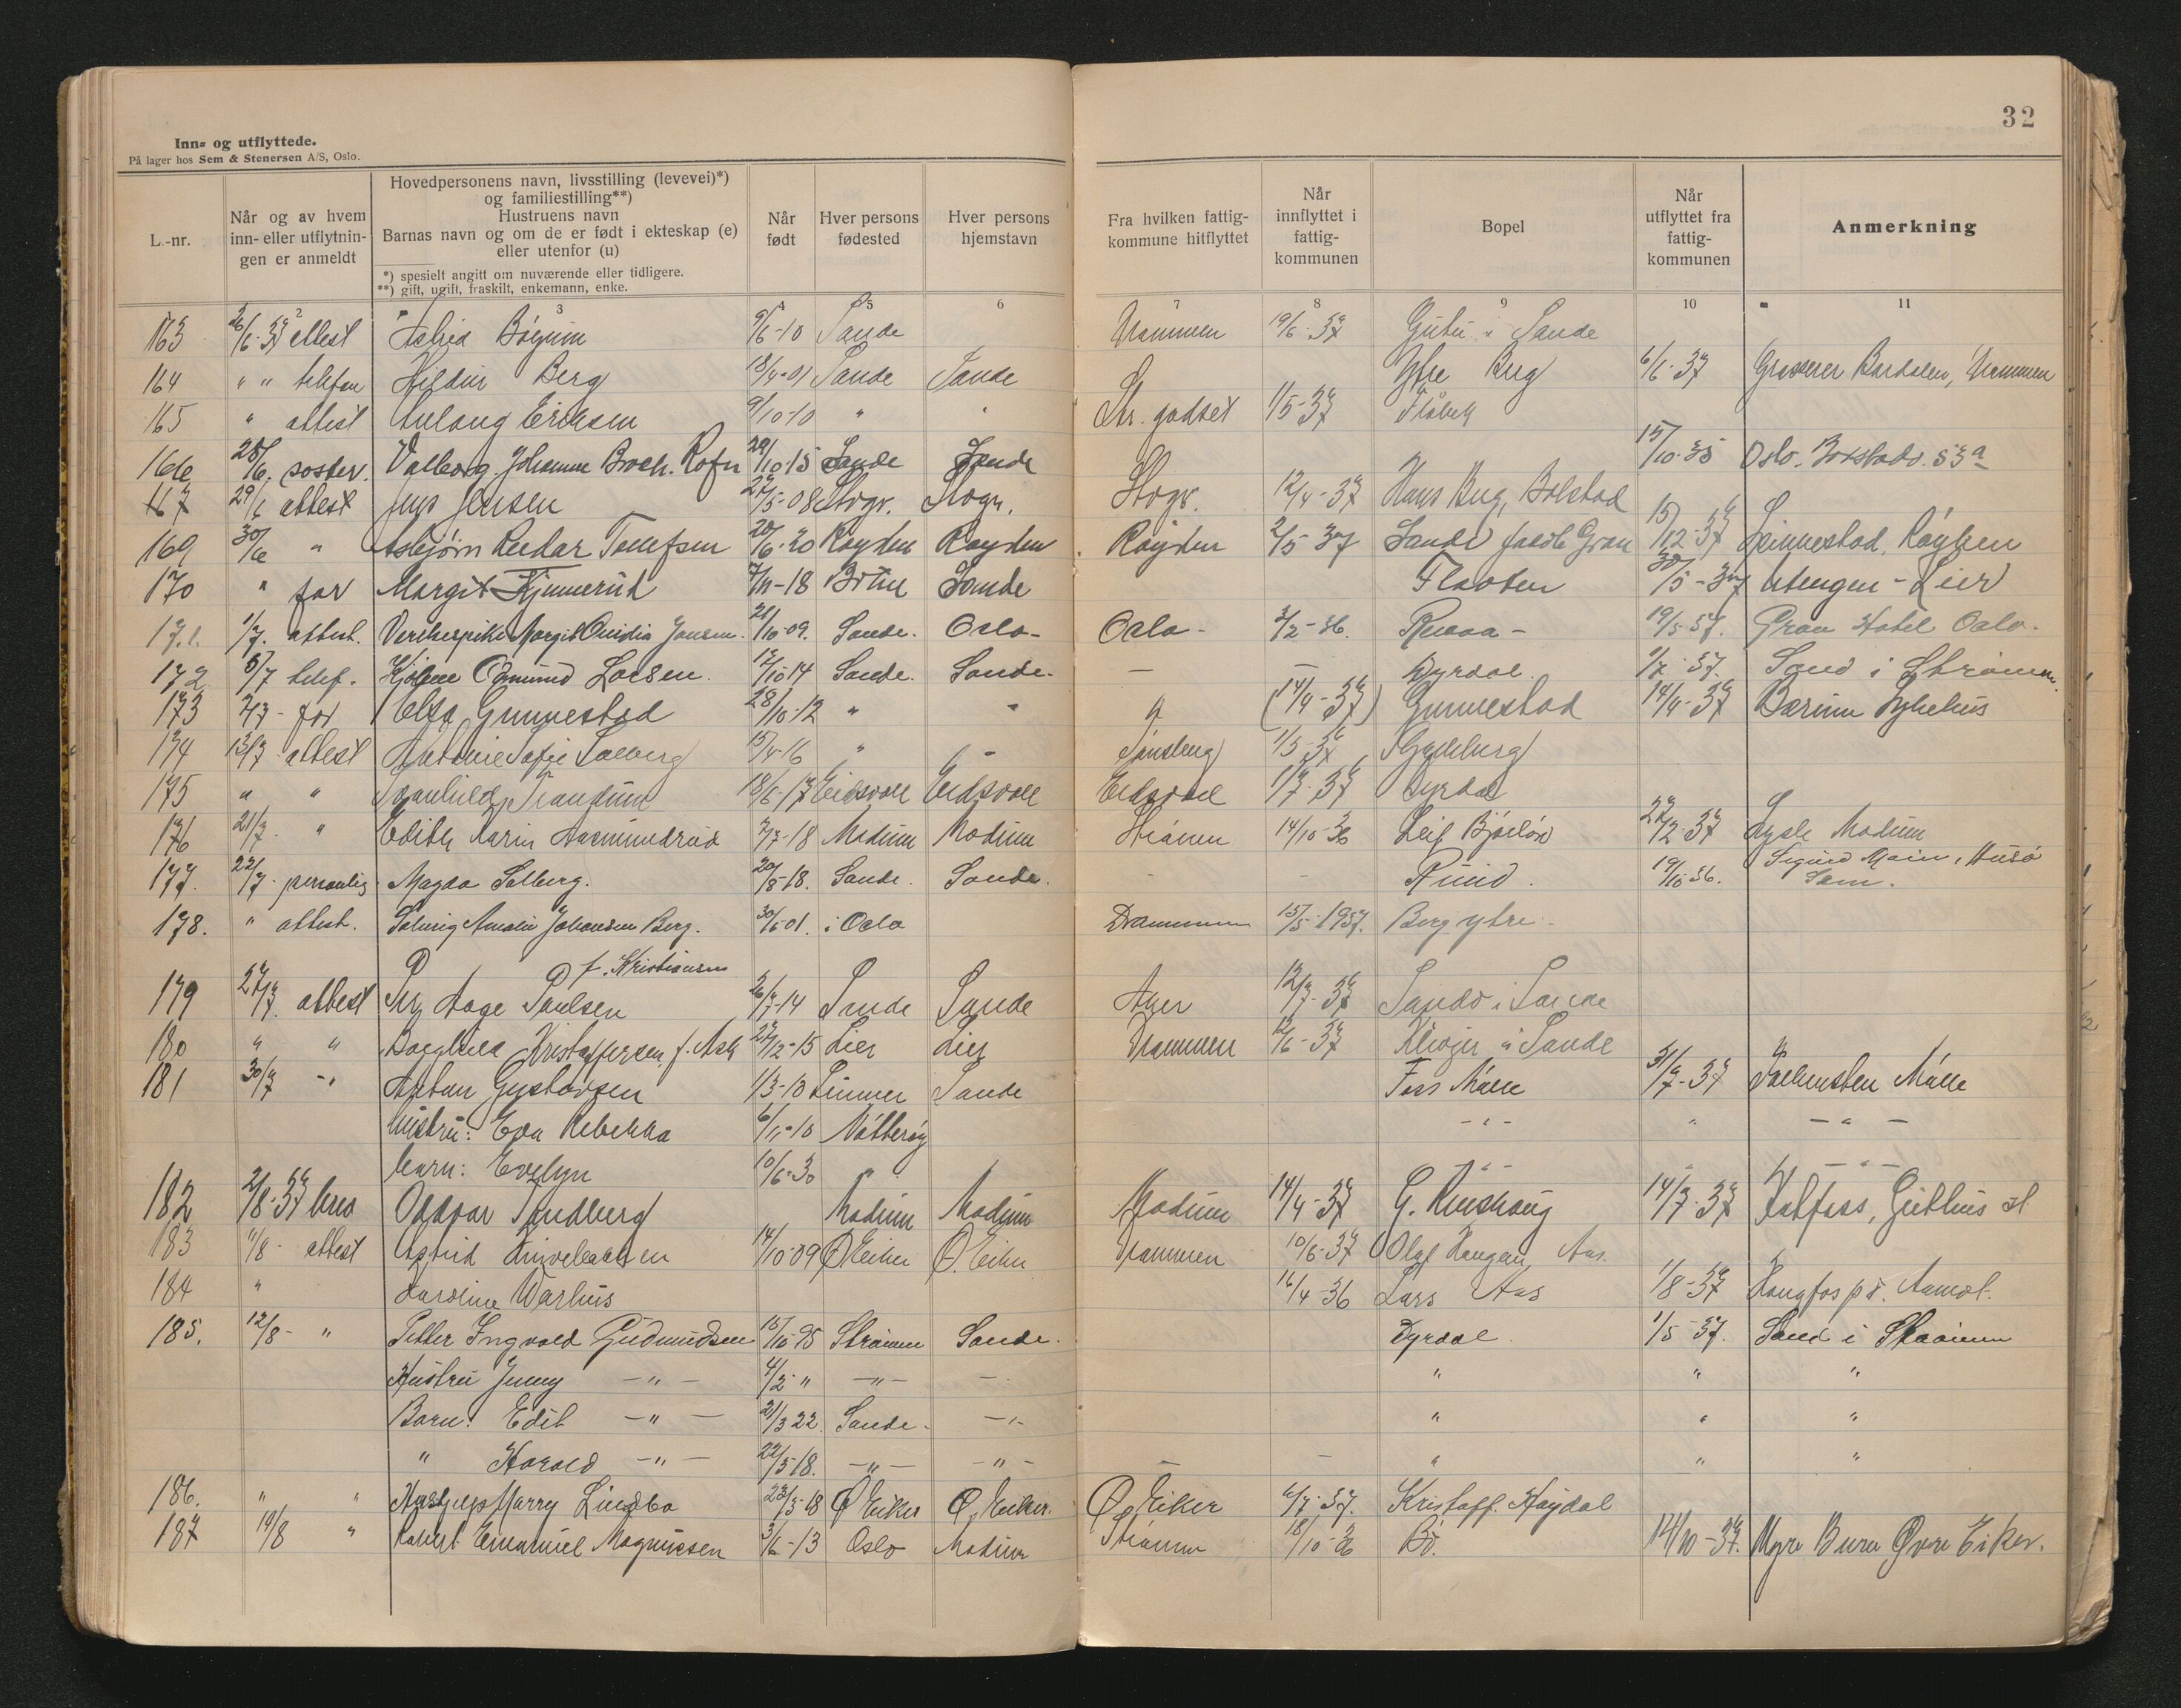 32
Inn- og utflyttede.
På lager hos Sem & Stenersen A/S, Oslo.
L.-nr.
Når og av hvem inn- eller utflytnin-gen er anmeldt
Hovedpersonens navn, livsstilling (levevei)*) og familiestilling**)
Hustruens navn
Barnas navn og om de er født i ekteskap (e) eller utenfor (u)
*) spesielt angitt om nuværende eller tidligere.
**) gift, ugift, fraskilt, enkemann, enke.
Når født
Hver persons fødested
Hver persons hjemstavn
Fra hvilken fattig-kommune hitflyttet
Når innflyttet i fattig-kommunen
Bopel
Når utflyttet fra fattig-kommunen
Anmerkning
2 3 4 5 6 7 8 9 10 11
163 26/6-37 attest 9/6-10 Sande Drammen 19/6-37 i Sande
164 " " telefon Hildur Berg 18/4-01 Sande Sande Berg 6/6-37 Grosserer Bardalen, Drammen
165 " attest Aulaug Eriksen 9/10-10 " " Str. godset 1/5-37
166 28/6. postv. Valborg Johanne 29/10-15 Sande Sande 15/10-35 Oslo.
167 29/6 attest Jens Jensen 27/5-08 Skogr. Skogr. Skogr. 12/4-37 Hans Berg, Bolstad
169 30/6 " Asbjørn Reidar Tollefsen 20/6-20 Røyken Røyken Røyken 2/5-37 Sande Gran 15/12-37 Spinnestad, Røyken
170 " far Margit Kjinnerud 7/11-18 Botne Sande Flaaten 30/5-37 Utengen - Lier
171. 1/7. attest. Margit Ovidia Jansen. 21/10-09. Sande. Oslo- Oslo- 3/2-36. Revaa- 19/5-37. Gran Hotel Oslo.
172 5/7 telef. Omund Larsen. 17/10-14 Sande. Sande. — — Dyrdal. 1/7-37. Sand i Strømm.
173 7/7- far Elsa Gunnestad 28/10-12 " " " (14/4-37) Gunnestad 14/4-37 Bærum Sykehus
174 13/7 attest Sofie Solberg 15/4-16 " " Tønsberg 1/5-37
175 " " Ragnhild Trandum 18/6-17 Eidsvoll Eidsvoll Eidsvoll 1/7-37 Dyrdal
176 21/7. " Edith Karin Aasmundrud 7/7-18 Modum Modum Strømm 14/10-36 Leif 27/2-37 Lysle Modum
177. 22/7. personlig Magda Solberg. 20/8-18. Sande. Sande. - - Ruud. 19/10-36. Sigurd Moin, Husø Sem.
178. " attest. Solveig Amalie Johansen Berg. f. Kristiansen 30/6-01. i Oslo Drammen 15/5-1937. Berg ytre.
179 27/7. attest Per Aage Paulsen 26/7-14 Sande Sande Aker 12/7-37 Sande i Sande
180 " " Borghild Kristoffersen, f. Ask 27/12-15 Lier Lier Drammen 12/6-37 Klever i Sande
181 30/7 -" Anton Gustavsen 1/3-10 Sande Foss Mølle 31/7-37 Mølle
hustru: Eva Rebekka 6/11-10 Nøtterøy - " - " - " -
barn: Evelyn 10/6-30 " - " - " - " -
182 2/8-37 brev Oddvar Sundberg Modum Modum Modum 14/4-37 G. Rinshaug 14/7-37 Katfoss, Geithus st
183 11/8- attest Astrid 14/10-09 Ø. Eiker Ø. Eiker Drammen 10/6-37 Olaf Haugan Aas.
184 " Karoline Warhus 16/4-36 Lars Aas 1/8-37
185. 12/8- " Petter Ingvald Gudmundsen 15/10-95 Strømm Sande. Dyrdal 1/5-37. Sand i Strømm
Hustru Jenny — " — 4/2- " — " — — " " "
Barn: Edit — " — 21/3 22. Sande- — " - " " "
" Harald — " — 22/5-18. — " — — " — — " " "
186. " " Harry Lindbo 23/5-18 Ø Eiker Ø. Eiker. Ø. Eiker 6/7-37. Kristoff. Høydal
187 19/8 " Emanuel Magnussen 3/6-13 Oslo Modum Strømm 18/10-36 Bø. 14/10-37. Myra Buru Øvre Eiker.